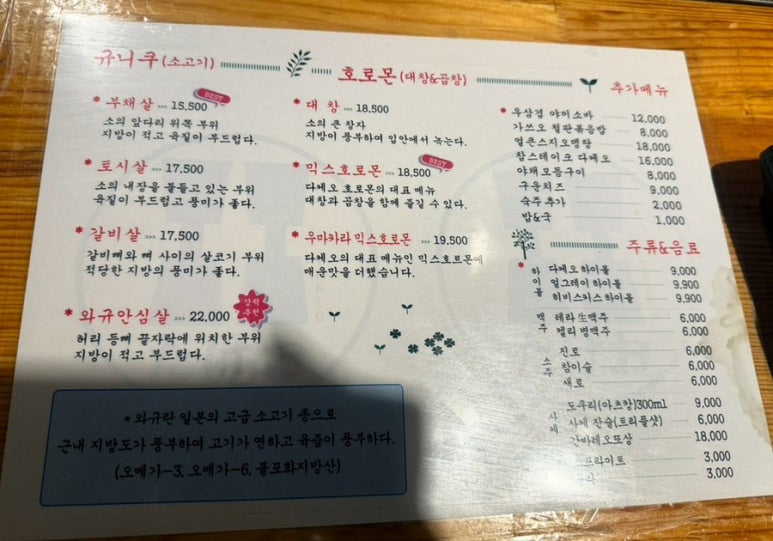 규니쿠(소고기)
* 부채살 >>> 15,500
BEST
소의 앞다리 위쪽 부위
지방이 적고 육질이 부드럽다.
* 토시살 >>> 17,500
소의 내장을 붙들고 있는 부위
육질이 부드럽고 풍미가 좋다.
* 갈비살 >>> 17,500
갈비뼈와 뼈 사이의 살코기 부위
적당한 지방의 풍미가 좋다.
* 와규안심살 >>> 22,000
강력
추천
허리 등뼈 끝자락에 위치한 부위
지방이 적고 부드럽다.
*와규란 일본의 고급 소고기 종으로
근내 지방도가 풍부하여 고기가 연하고 육즙이 풍부하다.
(오메가-3, 오메가-6, 불포화지방산)
호로몬(대창&곱창)
* 대창 >>> 18,500
소의 큰 창자
지방이 풍부하여 입안에서 녹는다.
* 믹스호로몬 >>> 18,500
BEST
다케오 호로몬의 대표 메뉴
대창과 곱창을 함께 즐길 수 있다.
* 우마카라 믹스호로몬 >>> 19,500
다케오의 대표 메뉴인 믹스호르몬에
매운맛을 더했습니다.
추가메뉴
* 우삼겹 야끼소바 12,000
가쓰오 철판볶음밥 8,000
얼큰스지오뎅탕 18,000
찹스테이크 다케오 16,000
야채모듬구이 8,000
구운치즈 9,000
숙주 추가 2,000
밥&국 1,000
주류&음료
* 하이볼
다케오 하이볼 9,000
얼그레이 하이볼 9,900
히비스커스 하이볼 9,900
맥주
테라 生맥주 6,000
캘리 병맥주 6,000
소주
진로 6,000
참이슬 6,000
새로 6,000
사케
도쿠리(마츠캉)300ml 9,000
사케 잔술(트리플샷) 6,000
간바레오또상 18,000
프라이트 3,000
3,000